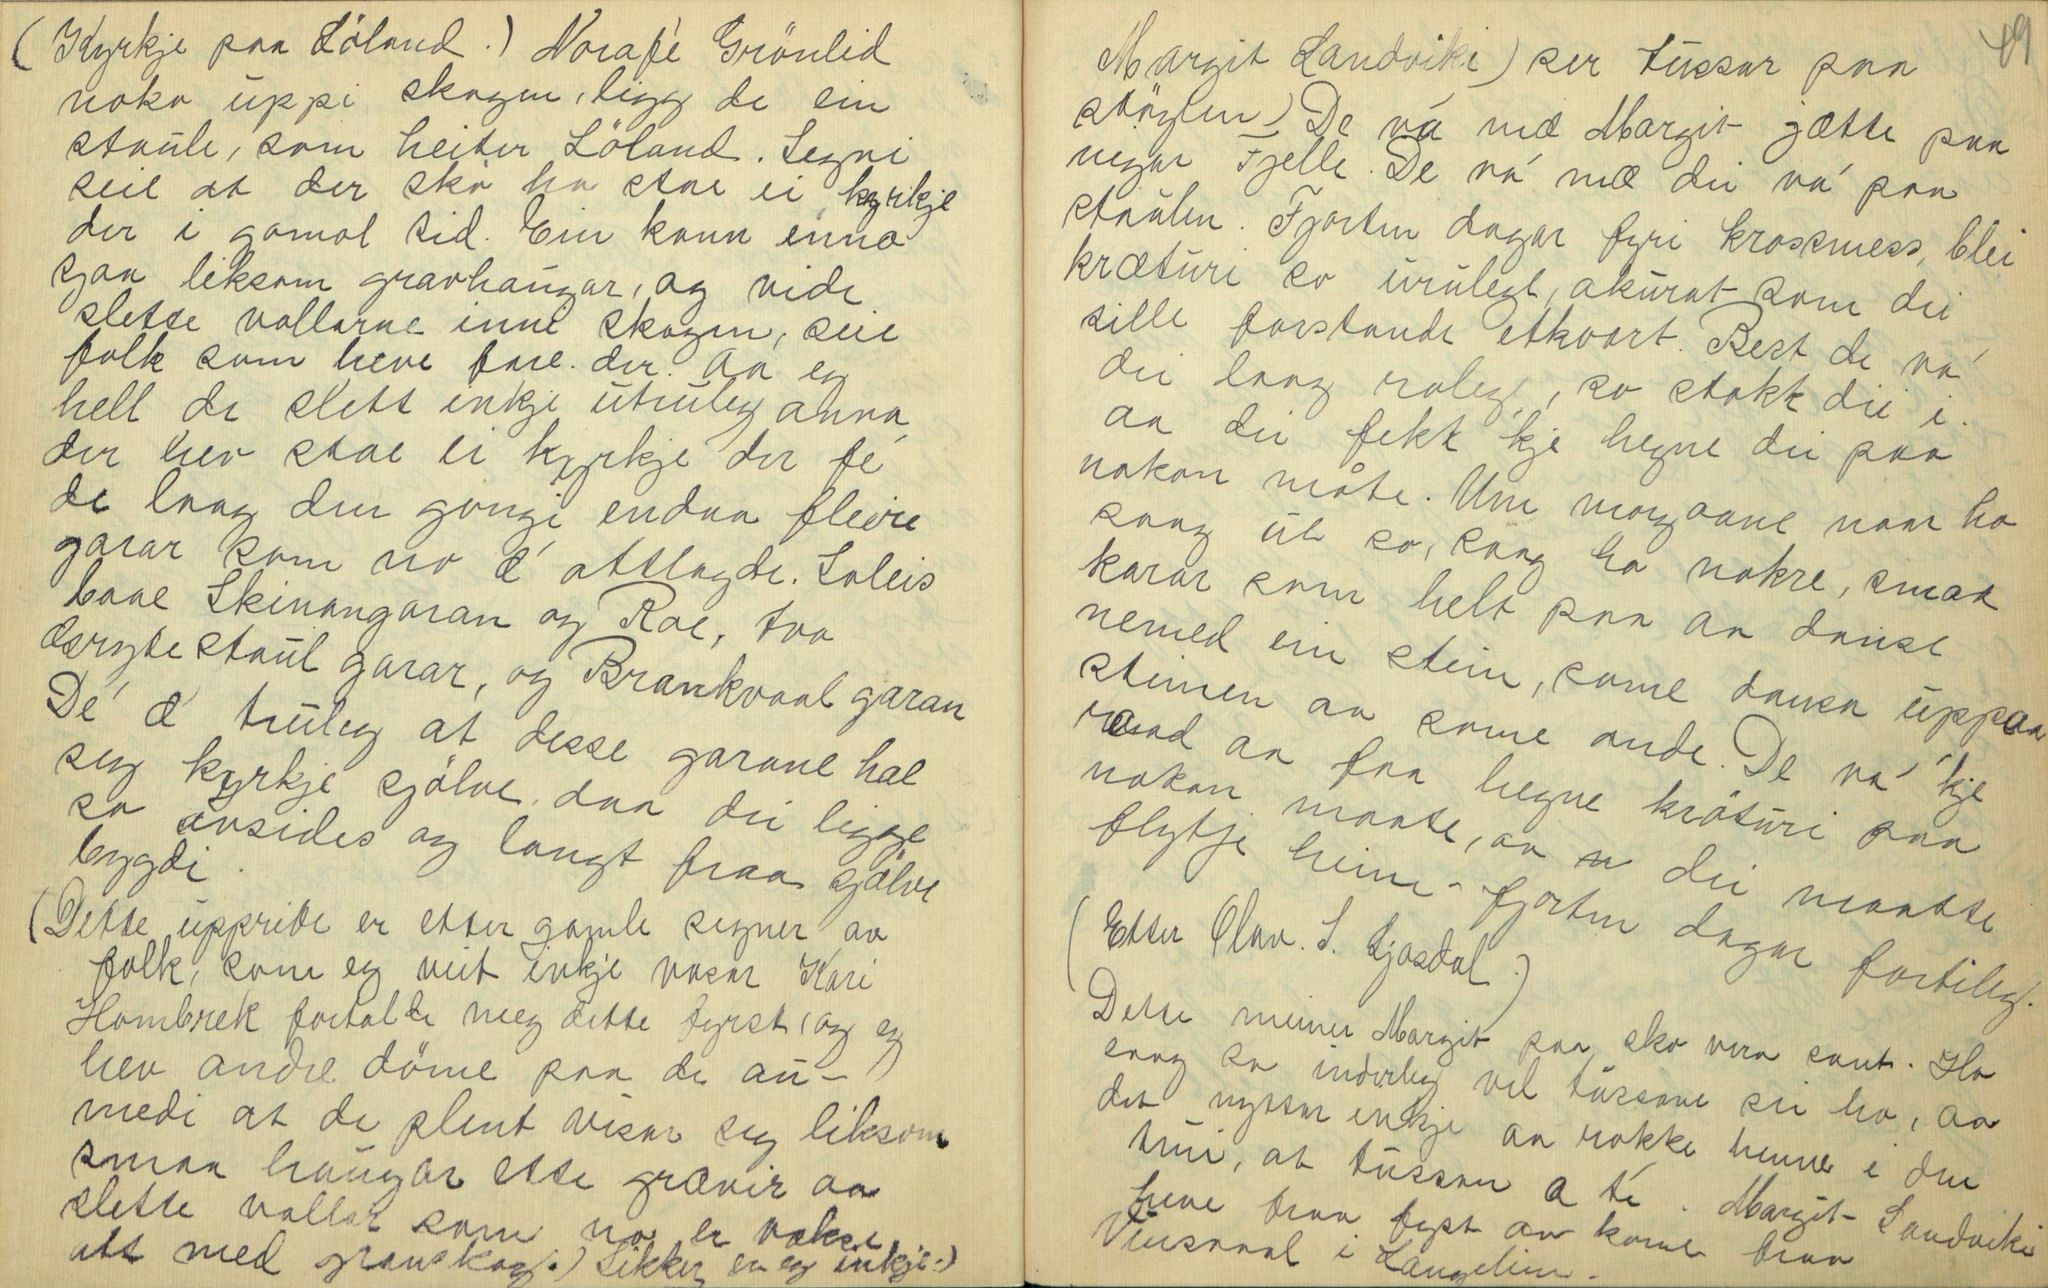 (Kyrkje paa Löland.) Norafé Grönlid
noko uppi skogen, ligg de ein
staule, som heiter Löland. Segni
seie at der sko ha stae ei kyrkje
der i gamal tid. Ein kann enno
sjaa liksom gravhaugar, og vide
slette vollarne inne skogen, seie
folk som heve fare der. Aa eg
hell de slett inkje utruleg anna,
der hev stae ei kyrkje der fé
de laag den gongi endaa fleire
garar som no æ' attlagde. Soleis
baae Skinangaran og Roe, tvo
staul garar, og Brankvaal garan
Dé æ' truleg at desse garane hae
seg kyrkje sjölve, daa dei ligge
so avsides og langt fraa sjölve
bygdi.
(Dette upprite er etter gamle segner av
folk, som eg veit inkje visar Kari
Hombrek fortalde meg dette fyrst, og eg
hev andre döme paa de au-
medi at de plent visar seg liksom
smaa haugar ette grævir aa
slette vollar som no er vakse
att med granskog.) Sikker er eg inkje.)
49
Margit Landviki) ser tussar paa
stöylen) De va' mæ Margit gætte paa
Fjelle. De va' mæ dei va' paa
staulen. Fjorten dagar fyri krossmess, blei
kræturi so urulegt, akurat som dei
sille forstande etkvart. Best de va'
dei laag rolegt, so stakk dei i
aa dei fekk 'kje hegne dei paa
nokon måte. Um morgoane naar ho
saag ut so, saag ho nokre, smaa
karar som helt paa aa danse
nemed ein stein, some dansa uppaa
steinen aa some ande. De va' 'kje
raad aa faa hegne kröturi paa
nokon maate, aa dei maatte
flytje heim fjorten dagar fortileg.
(Etter Olav. S. Ljosdal.)
Dette meiner Margit paa sko vera sant. Ho
saag so inderleg vel tussane sei ho, aa
det nyttar inkje aa rokke henne i den
trui, at tussan æ te. Margit Landviki
heve fraa fyst av kome fraa
Vinsvaal i Langelim.